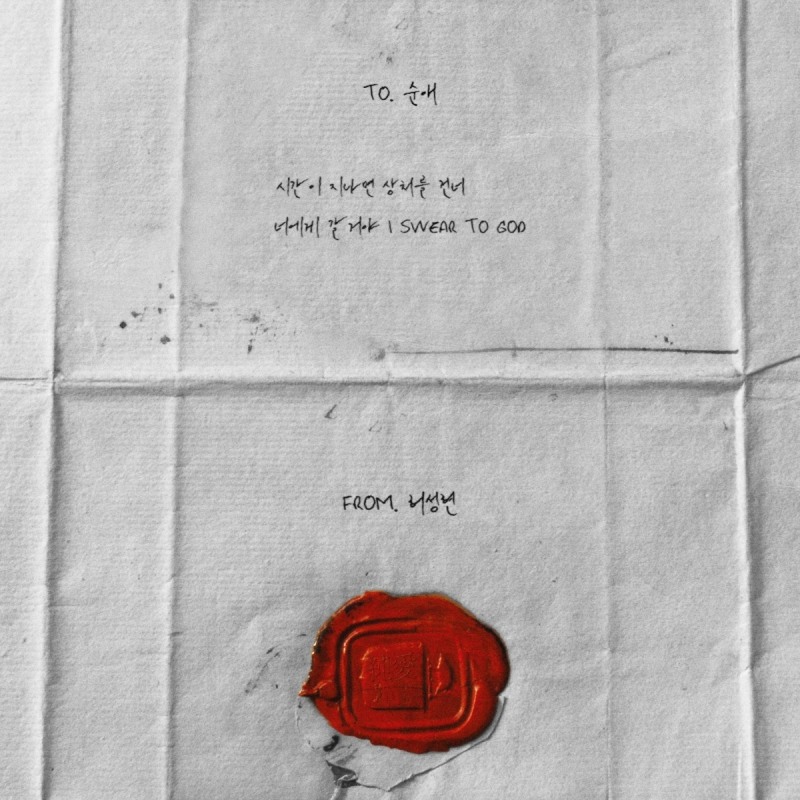 TO. 순애
시간이 지나면 상처를 건너
너에게 갈 거야 I SWEAR TO GOD
FROM. 허성현